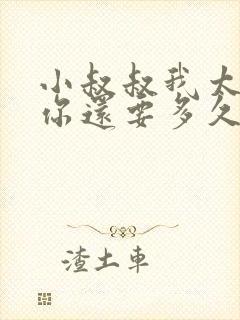 小叔叔我大
你還要多久
渣土車